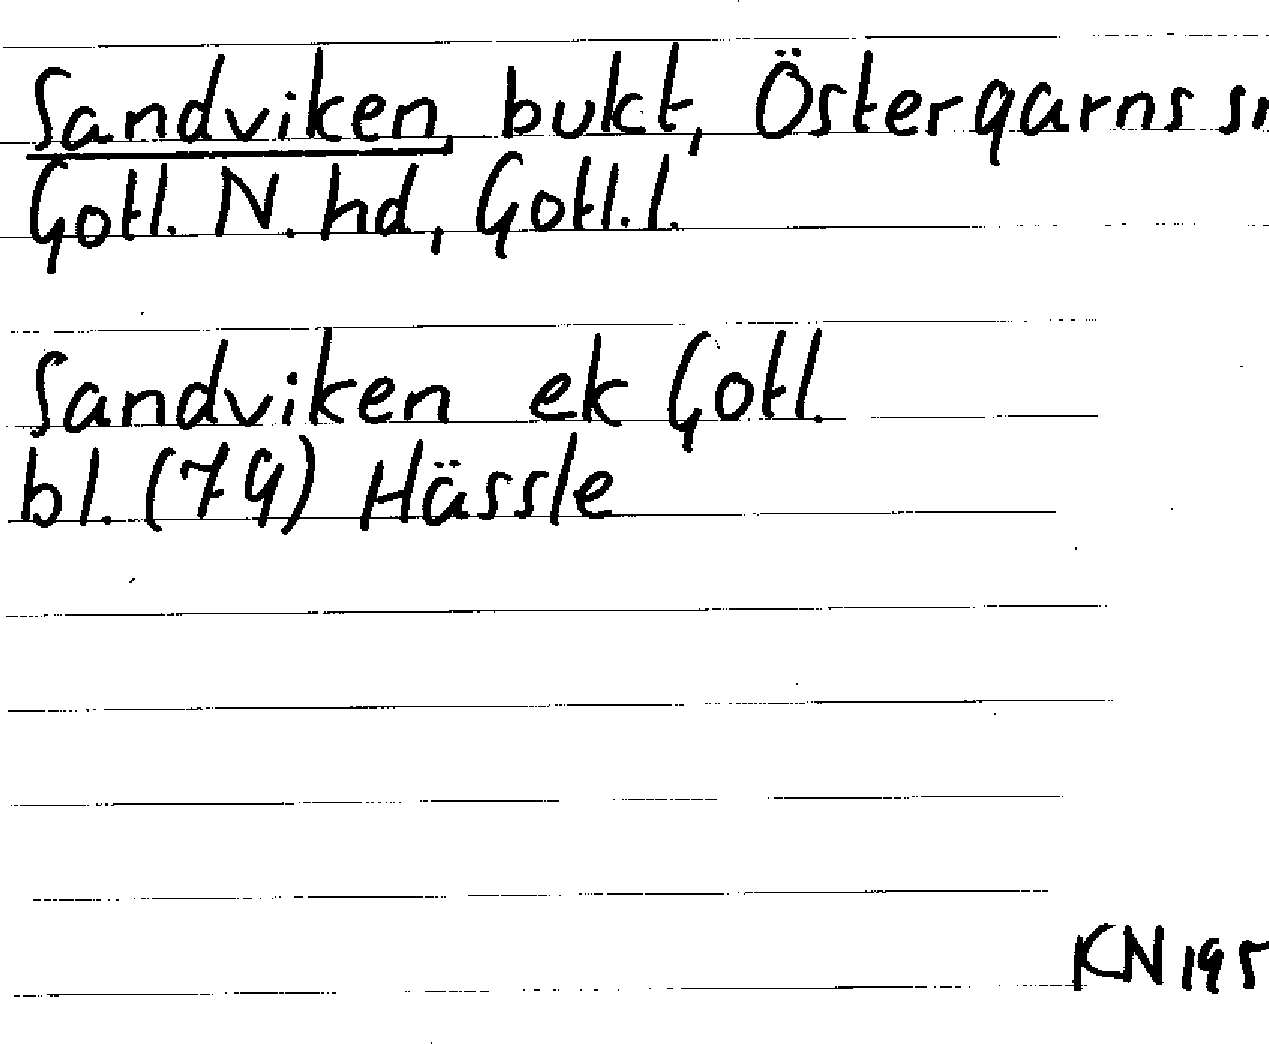 Sandviken, bukt, Östergarns
Gotl. N. hd, Gotl. l.
Sandviken ek Gotl.
bl. (79) Hässle
KN 195